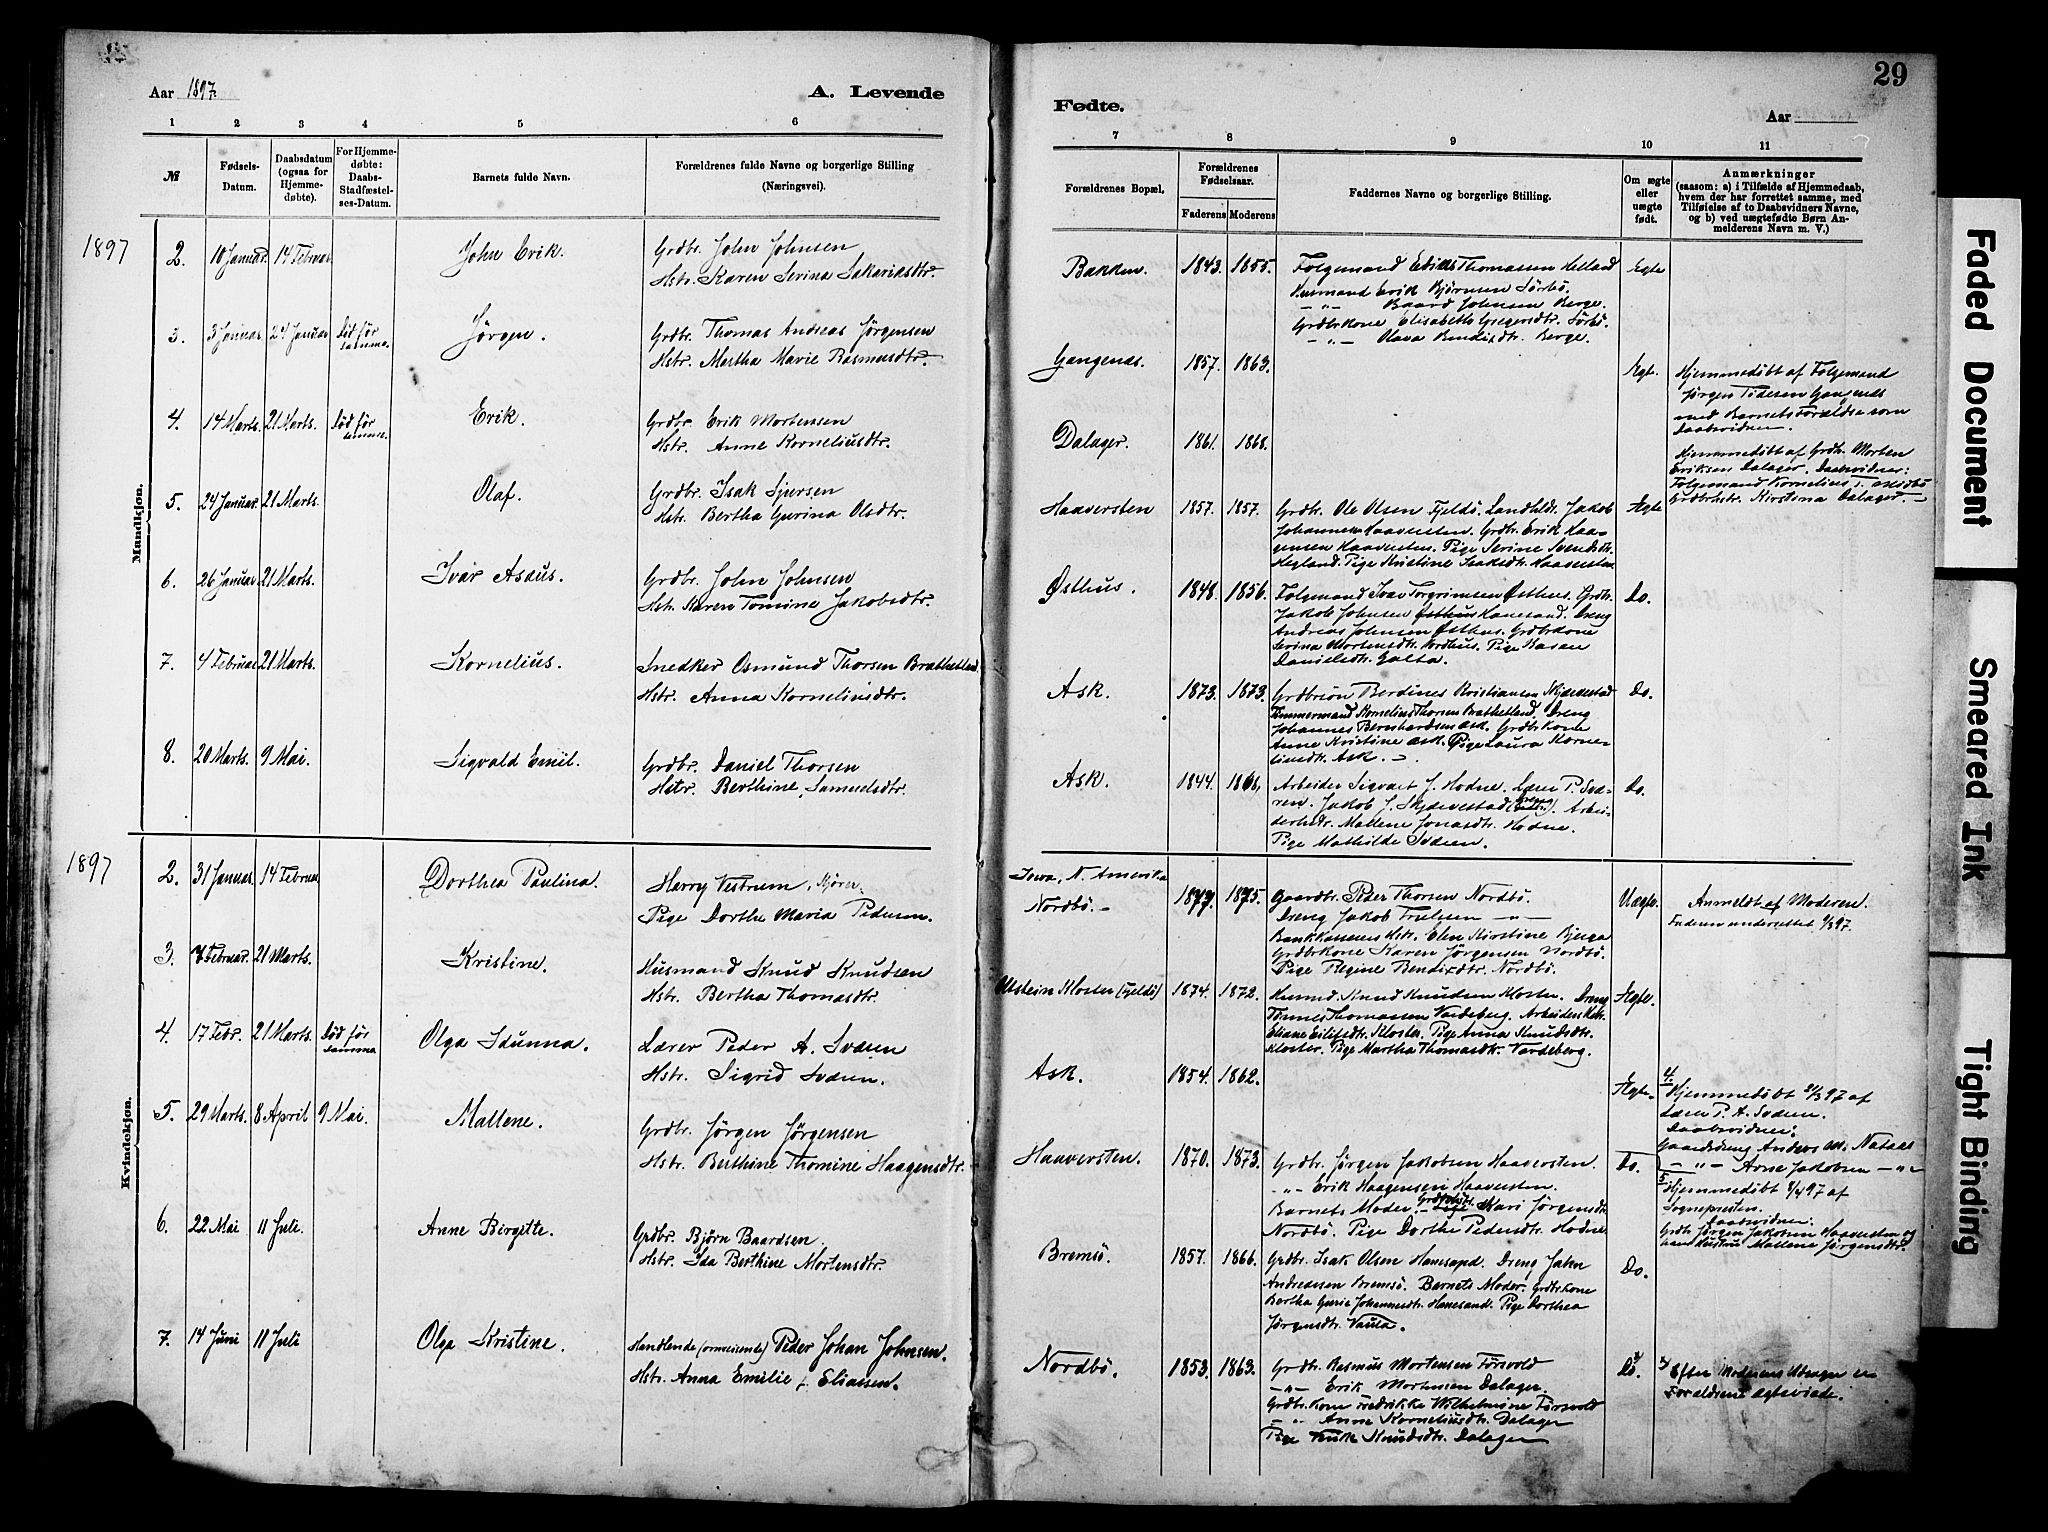 29
Aar 1897. A. Levende
Fødte. Aar
1 2 3 4 5 6
7 8 9 10 11
№
Fødsels-
Datum.
Daabsdatum
(ogsaa for
Hjemme-
døbte).
For Hjemme-
døbte:
Daabs-
Stadfæstel-
ses-Datum.
Barnets fulde Navn.
Forældrenes fulde Navne og borgerlige Stilling
(Næringsvei).
Forældrenes Bopæl.
Forældrenes
Fødselsaar.
Faderens Moderens
Faddernes Navne og borgerlige Stilling.
Om ægte
eller
uægte
født.
Anmærkninger
(saasom: a) i Tilfælde af Hjemmedaab,
hvem der har forrettet samme, med
Tilføielse af to Daabsvidners Navne,
og b) ved uægtefødte Børn An-
melderens Navn m. V.)
Mandkjøn.
1897
2. 10 Januar. 14 Februar John Erik. Grdbr. John Johnsen
Hstr. Karen Serina Sakariasdtr.
Bakken. 1843. 1855. Folgemand Thomassen Helland Ægte
Husmand Erik Bjørnsen Sørbø.
— " — Baard Johnsen Berge.
Grdbrkone Elisabeth Gregersdtr. Sørbø.
— " — Olava Bendixdtr. Berge.
3. 3 Januar. 24 Januar Død før
samme. Jørgen. Grdbr. Thomas Andreas Jørgensen
Hstr. Martha Marie Rasmusdtr.
Gangenæs. 1857. 1863. Ægt. Hjemmedøbt af Folgemand
Jørgen Gangenæs
med Barnets Forældre som
Daabsvidner.
4. 14 Marts. 21 Marts. Død før
samme. Erik. Grdbr. Erik Mortensen
Hstr. Anne Korneliusdtr.
Dalager. 1861. 1868.
Hjemmedøbt af Grdbr. Morten
Eriksen Dalager. Daabsvidner:
Folgemand Kornelius
Grdbrhstr. Kirstina Dalager.
5. 24 Januar. 21 Marts. Olaf. Grdbr. Isak Sjursen
Hstr. Bertha Gurina Olsdtr.
Haaversten 1857. 1857. Grdbr. Ole Olsen Fjeldø. Landhdl. Jakob Ægte
Johannesen Haaversten. Grdbr. Erik Haa-
gensen Haaversten. Pige Serine Svendsdtr.
Hegland. Pige Kristine Isaksdtr. Haaversten
6. 26 Januar 21 Marts. Ivar Asaus. Grdbr. John Johnsen
Hstr. Karen Tomine Jakobsdtr.
Østhus. 1848. 1856. Folgemand Ivar Torgrimsen Østhus. Grdbr. Do.
Jakob Johnsen Østhus Hanesand. Dreng
Andreas Johnsen Østhus. Grdbrkone
Serina Mortensdtr. Pige Karen
Danielsdtr. Galta.
7. 4 Februar 21 Marts. Kornelius. Snedker Osmund Thorsen Brathetland
Hstr. Anna Korneliusdtr.
Ask. 1873. 1873. Grdbrsøn Berdines Kristiansen Skjævestad Do.
Tømmermand Kornelius Thorsen Brathetland. Dreng
Johannes Bernhardsen Ask. Grdbrkone
Anne Kristine Ask. Pige Laura Korne-
liusdtr. Ask.
8. 20 Marts. 9 Mai. Sigvald Emil. Grdbr. Daniel Thorsen
Hstr. Berthine Samuelsdtr.
Ask. 1844. Arbeider Sigvart J. Hodne. Lærer P. Svæ- Do.
ren. Jakob J. Skjævestad (Dreng). Arbei-
derhstr. Mallene Jonasdtr. Hodne.
Pige Mathilde Sværen.
Kvindekjøn.
1897
2. 31 Januar. 14 Februar Dorthea Paulina. Harry Vestrum,
Pige Dorthe Maria Pedersen.
Iowa, N. Amerika
Nordbø. 1877. 1875. Gaardbr. Peder Thorsen Nordbø. Uægte. Anmeldt af Moderen.
Dreng Jakob Truelsen — " — Faderen underrettet 1/3 97.
Bankkasserers Hstr. Elen Kirstine Bjerga
Grdbrkone Karen Jørgensen Nordbø.
Pige Regine Bendixdtr. Nordbø.
3. 7 Februar. 21 Marts. Kristine. Husmand Knud Knudsen
Hstr. Bertha Thomasdtr.
Utstein Kloster (Fjeldø) 1874. 1872. Husmd. Knud Knudsen Kloster. Dreng Ægte.
Tønnes Thomassen Vardeberg. Arbeiders Hstr.
Eliane Eilifsdtr. Kloster. Pige Anna Knudsdtr.
Kloster. Pige Martha Thomasdtr. Vardeberg.
4. 17 Febr. 21 Marts. Død før
samme Olga Idunna. Lærer Peder A. Sværen
Hstr. Sigrid Sværen.
Ask. 1854. 1862. Ægte.
4.
Hjemmedøbt 21/3 97 af
Lærer P. A. Sværen.
Daabsvidner:
Gaarddreng Anders
— " — Arne Jakobsen — " —
5. 29 Marts. 8 April 9 Mai. Mallene. Grdbr. Jørgen Jørgensen
Hstr. Berthine Thomine Haagensdtr.
Haaversten. 1870. 1873. Grdbr. Jørgen Jakobsen Haaversten. Do.
— " — Erik Haagensen Haaversten.
Barnets Moder. Kari Jørgensdtr.
Nordbø. Pige Dorthe Pedersdtr. Hodne
5
Hjemmedøbt 8/4 97 af
Sognepresten.
Daabsvidner:
Grdbr. Jørgen Jakobsen Haaversten og
hans Hustru Mallene Jørgensdtr.
6. 22 Mai 11 Juli. Anne Birgitte. Grdbr. Bjørn Baardsen.
Hstr. Ida Berthine Mortensdtr.
Bremsø. 1857. 1866. Grdbr. Isak Olsen Hanesand. Dreng John Do.
Andreassen Bremsø. Barnets Moder. Grdbrkone
Bertha Gurie Johannesdtr. Hanesand. Pige Dorthea
Jørgensdtr. Vaula.
7. 14 Juni 11 Juli Olga Kristine. Handlende (omreisende) Peder Johan Johnsen.
Hstr. Anna Emilie f. Eliassen.
Nordbø. 1853. 1863. Grdbr. Rasmus Mortensen Førsvold Do.
— " — Erik Mortensen Dalager.
Grdbrkone Fredrikke Wilhelmine Førsvold
— " — Anne Korneliusdtr. Dalager
Pige Knudsdtr. Dalager
Efter Moderens Udsagn er
Forældrene ægteviede.
Faded Document
Smeared Ink
Tight Binding